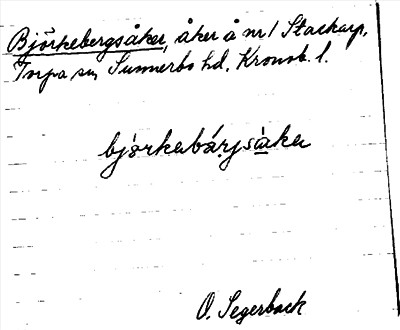 Björkebergsåker, åker å nr 1 Stackarp,
Torpa sn, Sunnerbo hd, Kronob. l.
björkabárjsàker
O. Segerback